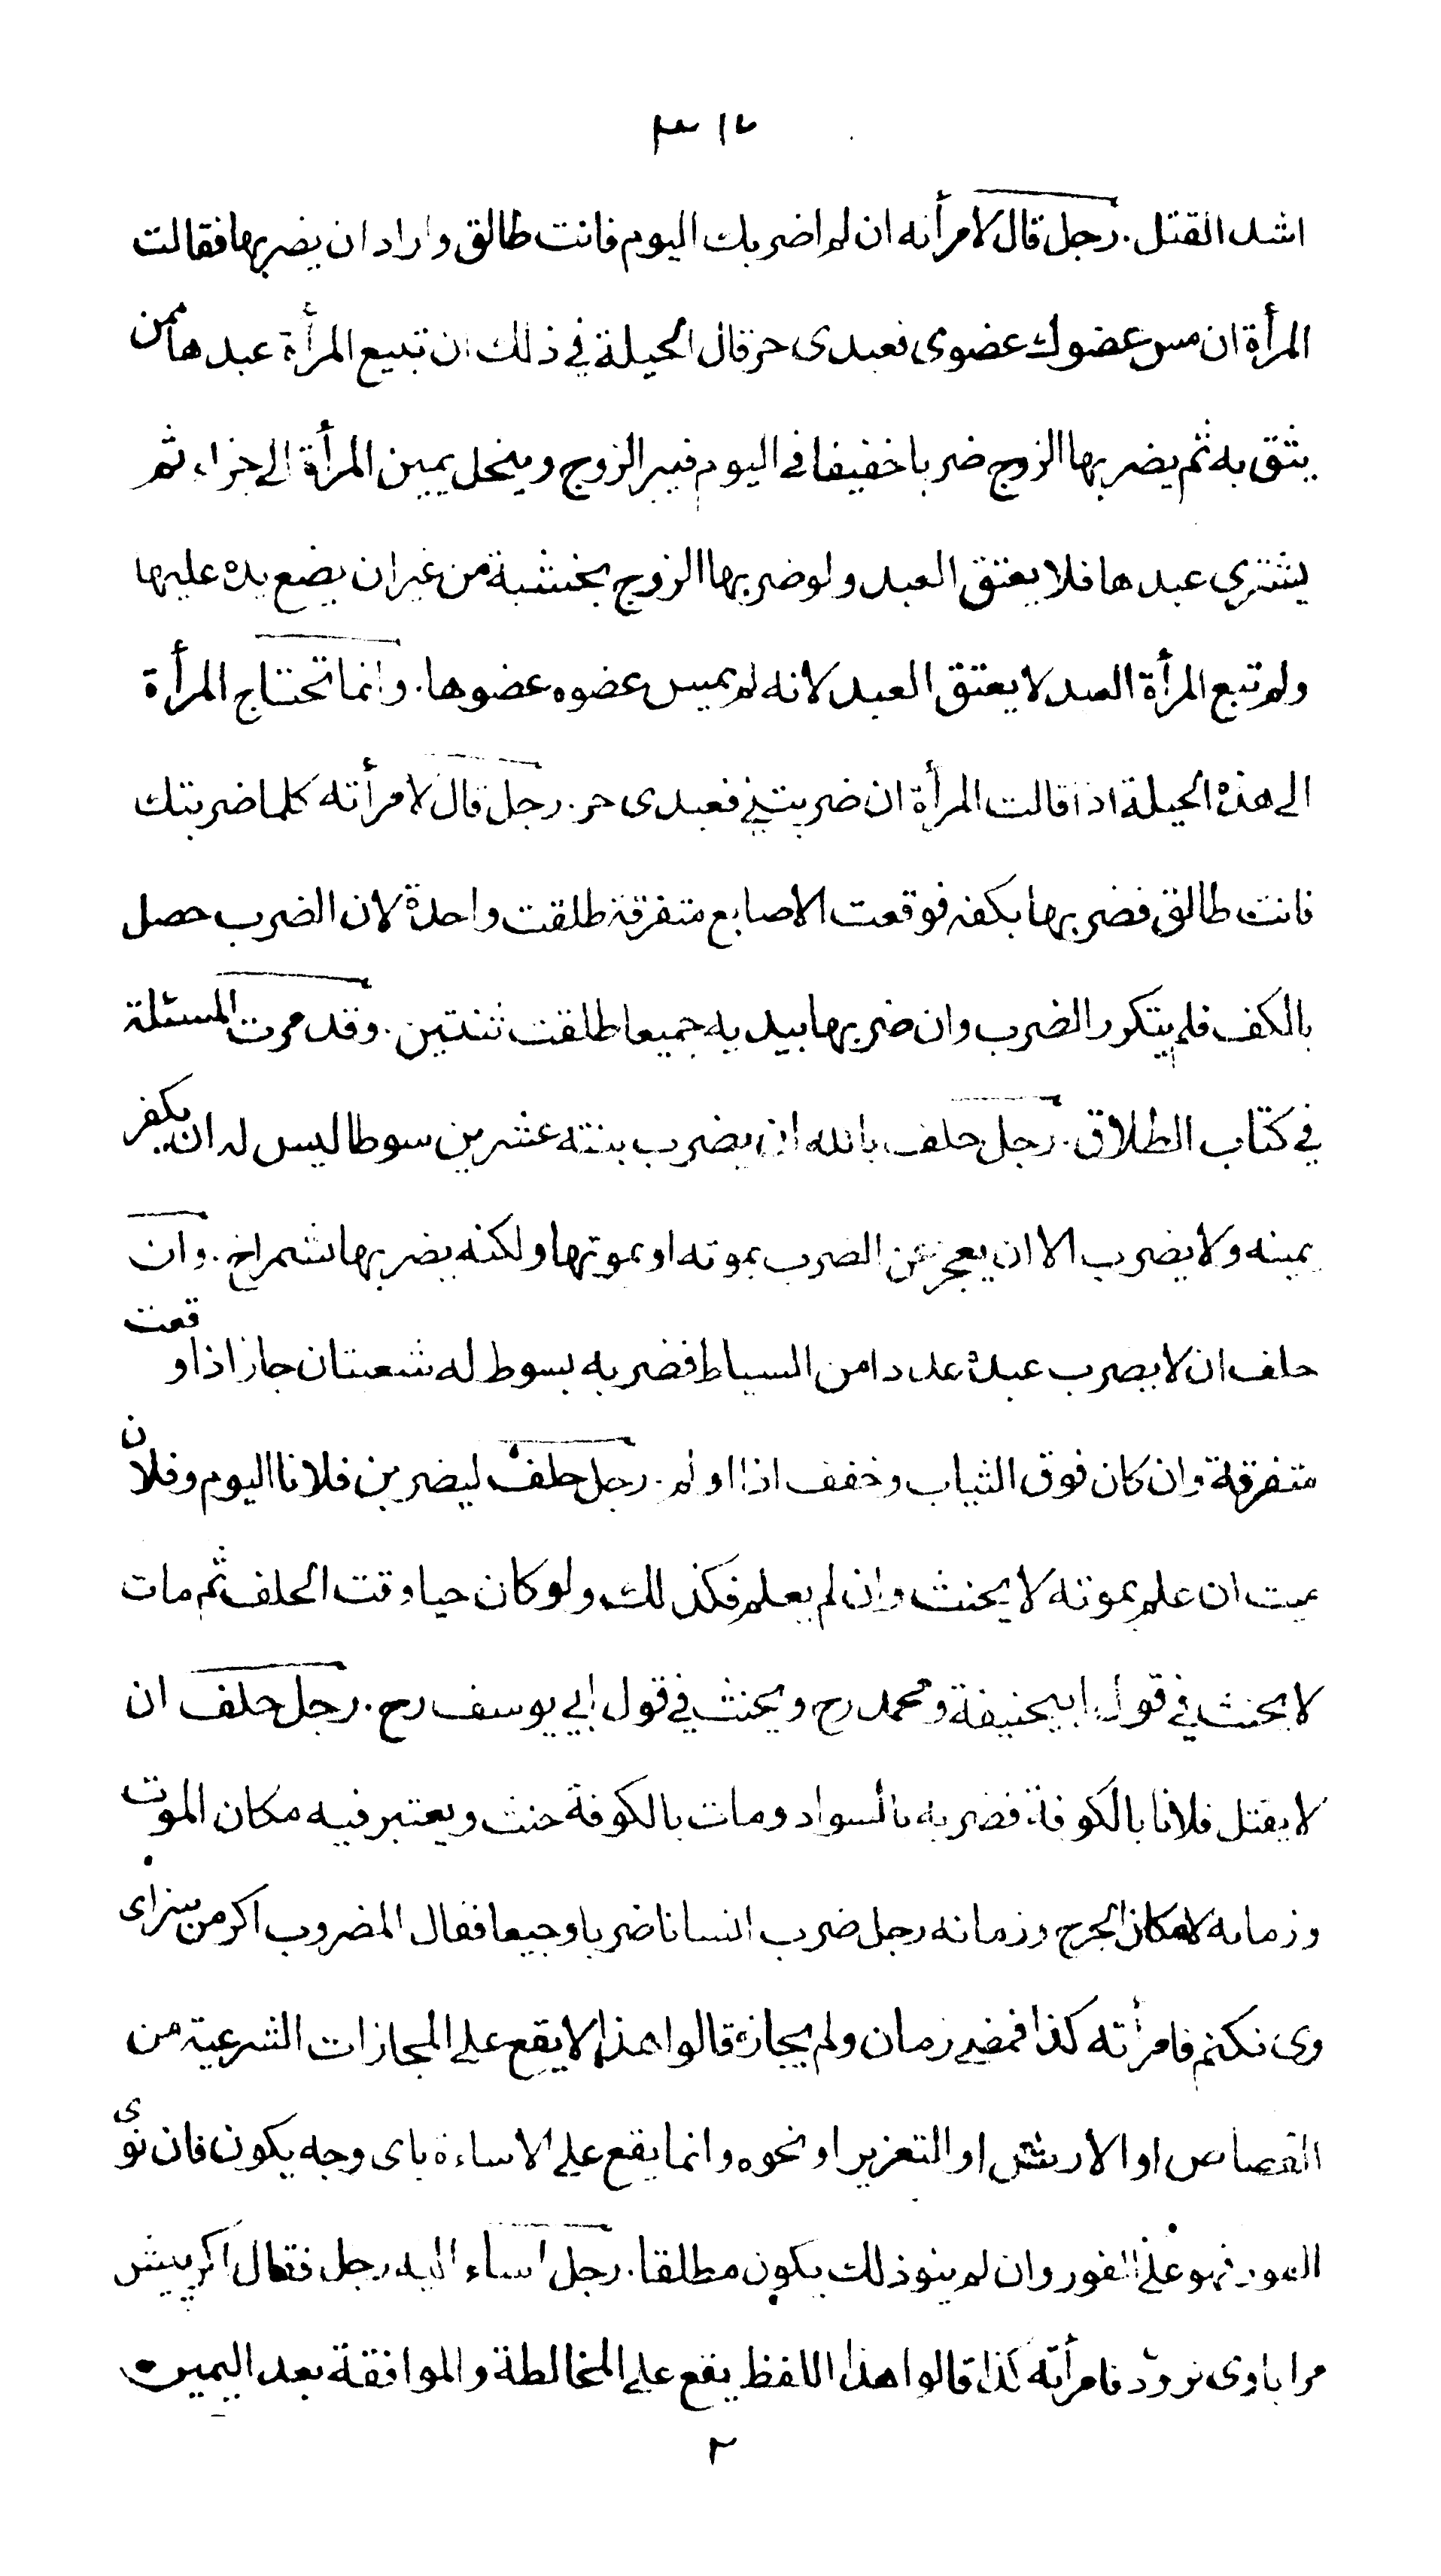 اشد القتل. رجل قال لامرأته ان لم اضربك اليوم فانت طالق واراد ان يضربها فقالت
المرأة ان مس عضوك عضوى فعبدى حر قال الحيلة في ذلك ان تبيع المرأة عبدها ممن
يثق به ثم يضربها الزوج ضربا خفيفا في اليوم فيبر الزوج وينحل يمين المرأة الى جزاء ثم
يشترى عبدها فلا يعتق العبد ولو ضربها الزوج بخشبة من غير ان يضع يده عليها
ولم تبع المرأة العبد لا يعتق العبد لانه لم يمس عضوه عضوها. وانما تحتاج المرأة
الى هذه الحيلة اذا قالت المرأة ان ضربتني فعبدى حر. رجل قال لامرأته كلما ضربتك
فانت طالق فضربها بكفه فوقعت الاصابع متفرقة طلقت واحدة لان الضرب حصل
بالكف فلم يتكرر الضرب وان ضربها بيديه جميعا طلقت ثنتين. وقد مرت المسئلة
في كتاب الطلاق. رجل حلف بالله ان يضرب بنته عشرين سوطا ليس له ان يكفر
يمينه ولا يضرب الا ان يعجز عن الضرب بموته او بموتها ولكنه يضربها بشمراخ. وان
حلف ان لا يضرب عبده عددا من السياط فضربه بسوط له شعبتان جاز اذا وقعت
متفرقة وان كان فوق الثياب وخفف اذا اولم. رجل حلف ليضربن فلانا اليوم وفلان
ميت ان علم بموته لا يحنث وان لم يعلم فكذلك ولو كان حيا وقت الحلف ثم مات
لا يحنث في قول ابيحنيفة ومحمد رح ويحنث في قول ابي يوسف رح. رجل حلف ان
لا يقتل فلانا بالكوفة فضربه بالسواد ومات بالكوفة حنث ويعتبر فيه مكان الموت
وزمانه لا مكان الجرح وزمانه رجل ضرب انسانا ضربا وجيعا فقال المضروب اكر من سزاى
وى نكنم فامرأته كذا فمضى زمان ولم يجازه قالوا هذا لا يقع على المجازات الشرعية من
القصاص او الارش او التعزير او نحوه وانما يقع على الاساءة باى وجه يكون فان نوى
الفور فهو على الفور وان لم ينو ذلك يكون مطلقا. رجل اساء اليه رجل فقال اكر پيش
مرا باوى نرود فامرأته كذا قالوا هذا اللفظ يقع على المخالطة والموافقة بعد اليمين
٢